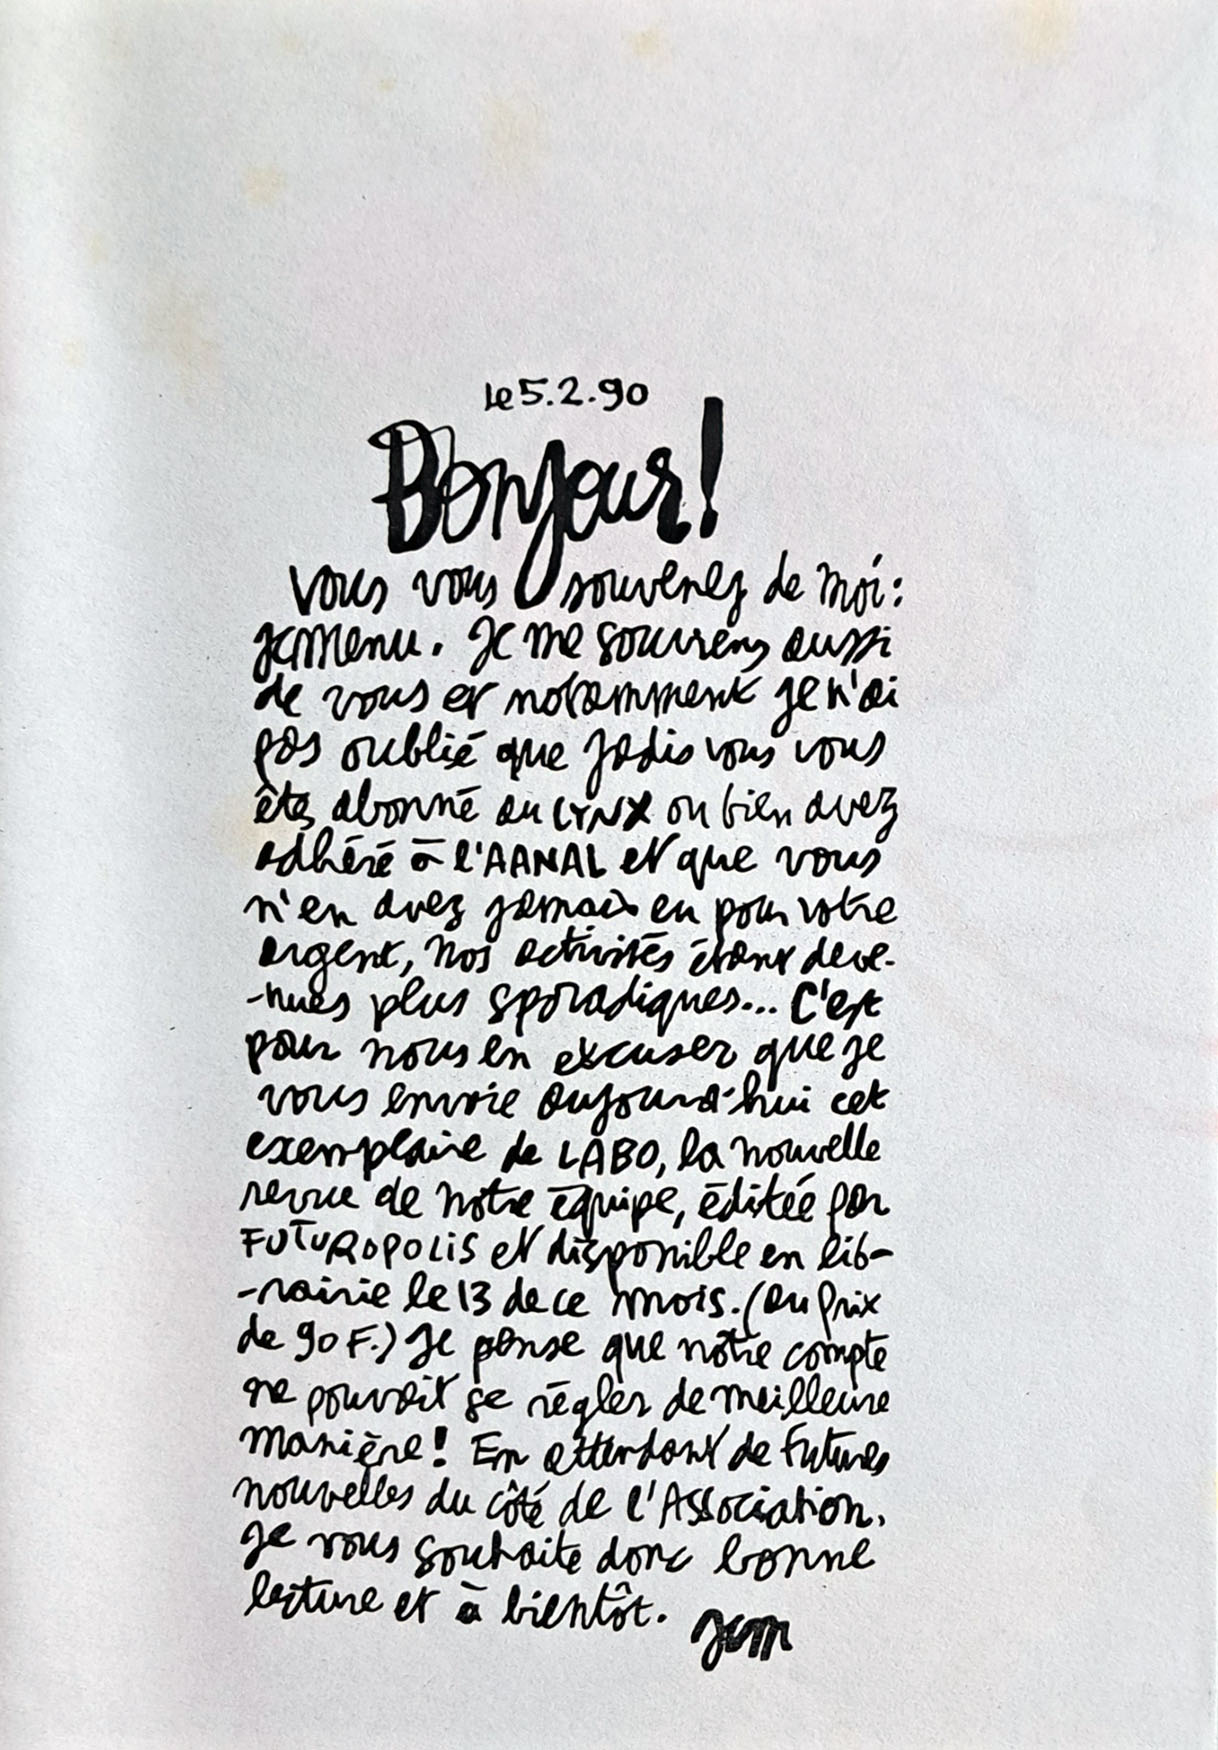 le 5.2.90
Bonjour!
vous vous souvenez de moi:
JCMenu. Je me souviens aussi
de vous et notamment je n'ai
pas oublié que jadis vous vous
êtes abonné au LYNX ou bien avez
adhéré à l'AANAL et que vous
n'en avez jamais eu pour votre
argent, nos activités étant deve-
-nues plus sporadiques... C'est
pour nous en excuser que je
vous envoie aujourd'hui cet
exemplaire de LABO, la nouvelle
revue de notre équipe, éditée par
FUTUROPOLIS et disponible en lib-
-rairie le 13 de ce mois. (au prix
de 90 F.) Je pense que notre compte
ne pouvait se régler de meilleure
manière! En attendant de futures
nouvelles du côté de l'Association,
je vous souhaite donc bonne
lecture et à bientôt.
JCM